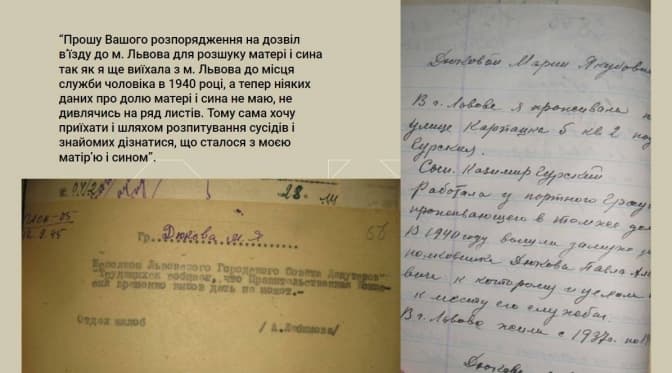 “Прошу Вашого розпорядження на дозвіл
в’їзду до м. Львова для розшуку матері і сина
так як я ще виїхала з м. Львова до місця
служби чоловіка в 1940 році, а тепер ніяких
даних про долю матері і сина не маю, не
дивлячись на ряд листів. Тому сама хочу
приїхати і шляхом розпитування сусідів і
знайомих дізнатися, що сталося з моєю
матір’ю і сином”.
Гр. Дюкова М. Я
68
Исполком Львовского Городского Совета Депутатов
Трудящихся сообщает, что
временно вызов дать не может.
Отдел жалоб
Дюковой Марии
В г. Львове я проживала
улице кв 2
Гурская.
Сын. Казимир Гурский
Работала у портного
проживающего в том же
В 1940 году вышла замуж
полковника Дюкова Павла
к которому и уехала
к месту его службы.
В г. Львове жили с 1937г. по